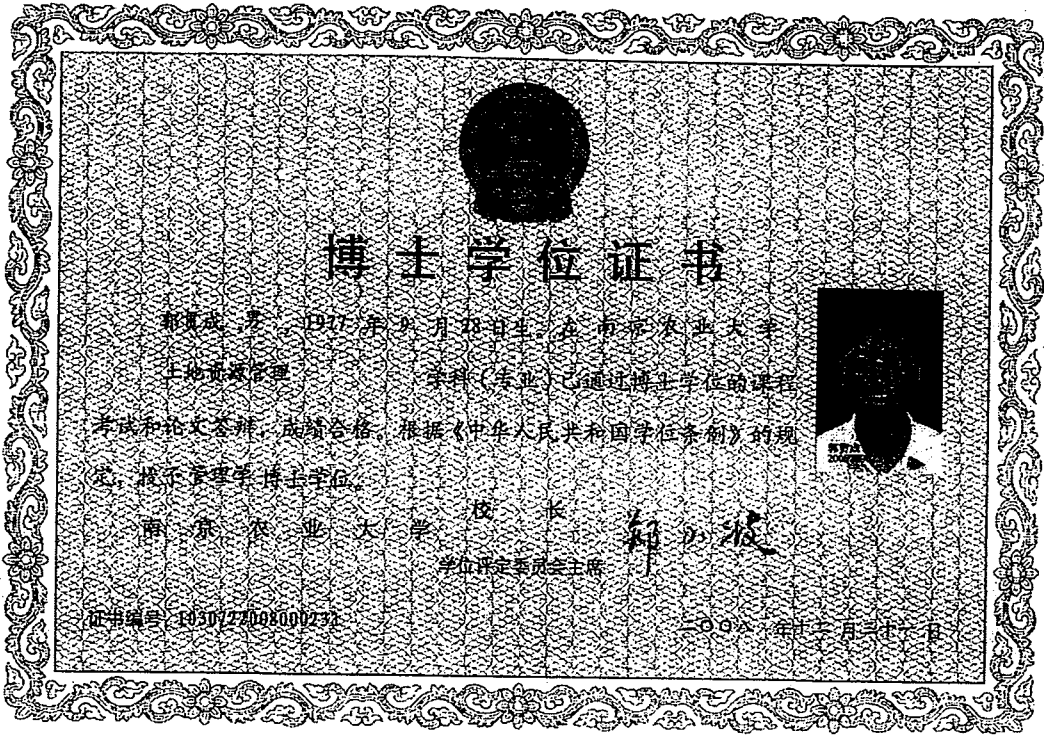 博士学位证书
郭贯成，男，1977年9月28日生。在南京农业大学
土地资源管理 学科（专业）已通过博士学位的课程
考试和论文答辩，成绩合格。根据《中华人民共和国学位条例》的规
定，授予管理学博士学位。
南京农业大学 校长 郑小波
学位评定委员会主席
证书编号：1030722008000232
二〇〇八年十二月三十一日